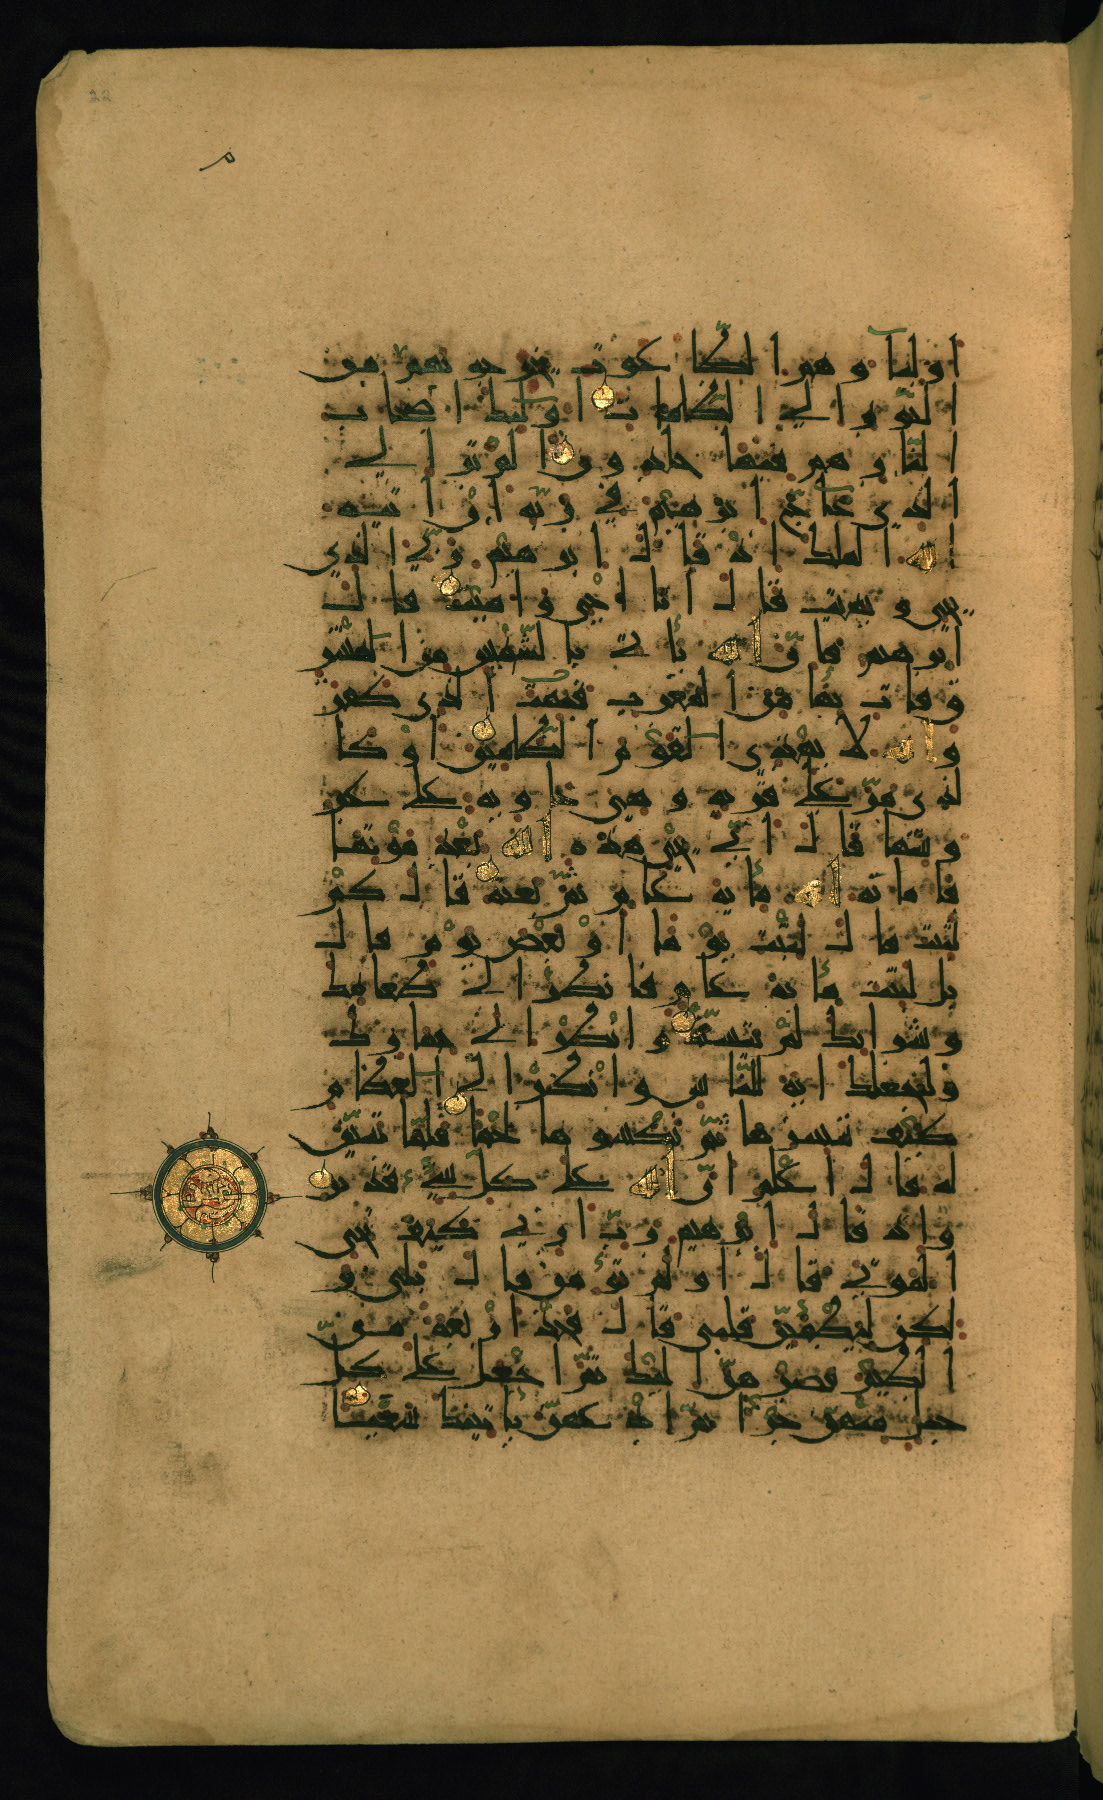 22
م
اوليآؤهم الطاغوت يخرجونهم من
النور الى الظلمات اولئك اصحاب
النار هم فيها خالدون الم تر الى
الذي حاج ابرهيم في ربه ان اتيه
الله الملك اذ قال ابرهيم ربي الذي
يحيي ويميت قال انا احيي واميت قال
ابرهيم فان الله يأتي بالشمس من المشر
ق فات بها من المغرب فبهت الذي كفر
والله لا يهدي القوم الظالمين او كا
لذي مر على قرية وهي خاوية على عر
وشها قال انى يحيي هذه الله بعد موتها
فاماته الله مائة عام ثم بعثه قال كم
لبثت قال لبثت يوما او بعض يوم قال
بل لبثت مائة عام فانظر الى طعامك
وشرابك لم يتسنه وانظر الى حمارك
ولنجعلك اية للناس وانظر الى العظام
كيف ننشزها ثم نكسوها لحما فلما تبين
له قال اعلم ان الله على كل شيء قدير
واذ قال ابرهيم رب ارني كيف تحيي
الموتى قال اولم تؤمن قال بلى و
لكن ليطمئن قلبي قال فخذ اربعة من
الطير فصرهن اليك ثم اجعل على كل
جبل منهن جزءا ثم ادعهن يأتينك سعيا